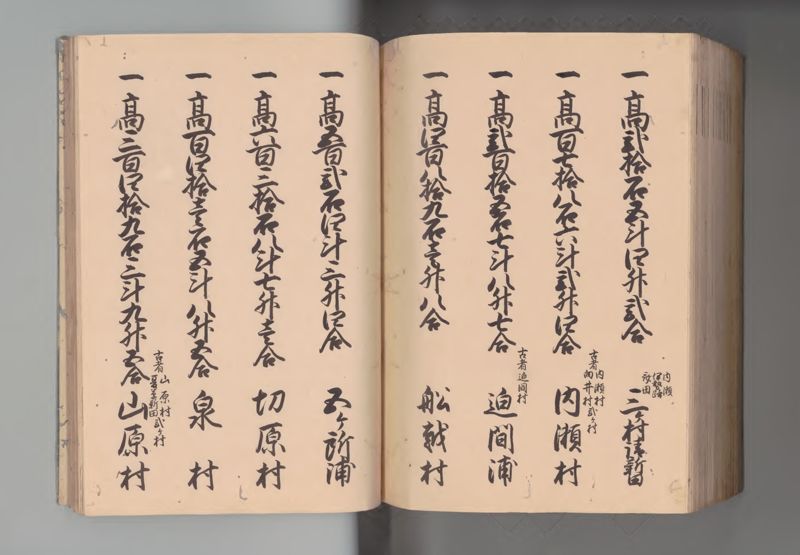 一 高弐拾石五斗四升弐合
内瀬
伊勢路
三ヶ村請新田
一 高百七拾八石六斗弐升四合
古者内瀬村
村弐ヶ村
内瀬村
一 高弐百拾五石七斗八升七合
古者迫間村
迫間浦
一 高四百八拾九石壱升八合
船越村
一 高五百弐石四斗三升四合
五ヶ所浦
一 高六百三拾石八斗七升壱合
切原村
一 高百四拾壱石五斗八升五合
泉村
一 高三百四拾九石三斗九升五合
古者山原村
新田弐ヶ村
山原村